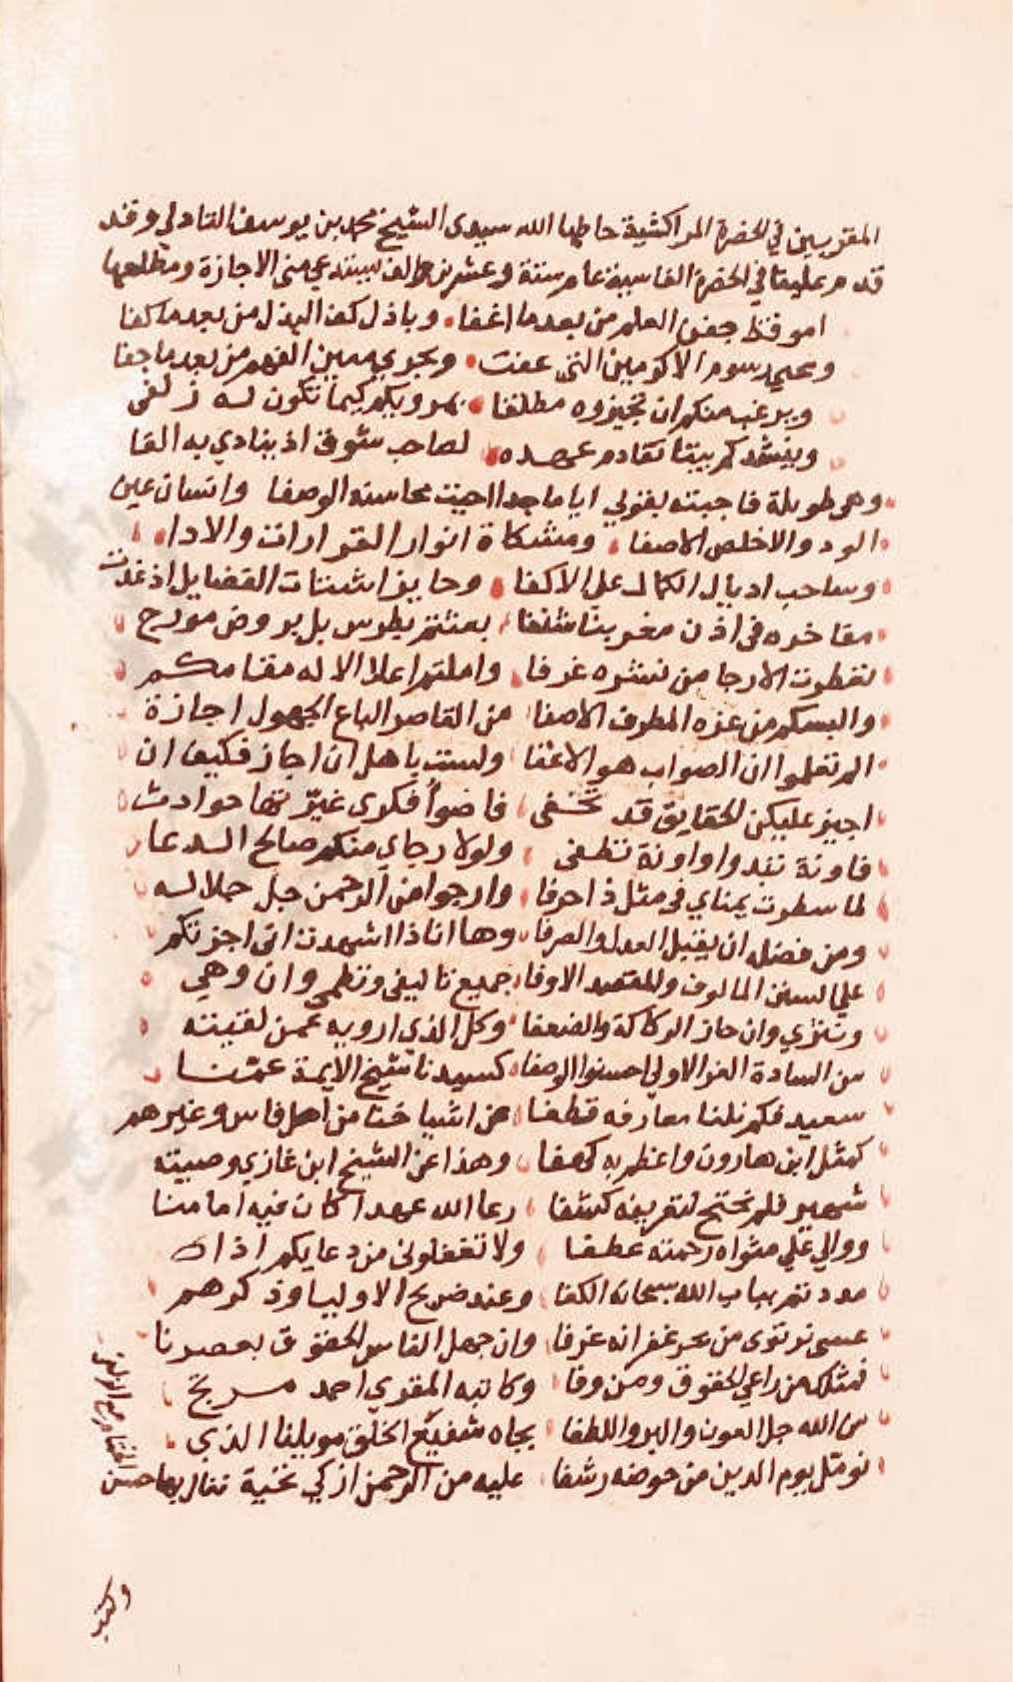 المقربين في الحضرة المراكشية حاطها الله سيدي الشيخ محمد بن يوسف التادلي وقد
قدم علينا في الحضرة الفاسية عام ستة وعشرين والف يبتغي مني الاجازة ومطلعها
اموقظ جفن العلم من بعد ما اغفا وباذل كف البذل من بعد ما كفا
ومحي رسوم الاكرمين التي عفت ومجري معين الفهم من بعد ما جفا
ويرغب منكم ان تجيزوه مطلقا بمرويكم كيما تكون له زلفى
وينشدكم بيتا تقادم عهده لصاحب شوق اذ ينادي به الفا
وهي طويلة فاجبته بقولي ايا ماجدا اعيت محاسنه الوصفا وانسان عين
الود والاخلص الاصفا ومشكاة انوار القراءات والاداء
وساحب اديال الكمال على الاكفا وحايز اشتات الفضايل اذ غدت
مفاخره في اذن مغربنا شنفا بعثتم بطرس بل بروض مورج
تعطرت الارجا من نشره عرفا واملتم اعلا الاله مقامكم
والبسكم من عزه المطرف الاصفا من القاصر الباع الجهول اجازة
الم تعلموا ان الصواب هو الاعفا ولست باهل ان اجاز فكيف ان
اجيز عليكن الحقايق قد تخفى فاضوأ فكري غيرتها حوادث
فاونة تبدوا واونة تطفى ولولا رجاي منكم صالح الدعا
لما سطرت يمناي في مثل ذا حرفا وارجوا من الرحمن جل جلاله
ومن فضله ان يقبل العدل والصرفا وها انا ذا اشهدت اني اجزتكم
على السنن المالوف والمقصد الاوفا جميع تاليفي ونظمي وان وهي
ونثري وان حاز الركاكة والضعفا وكل الذي ارويه عمن لقيته
من السادة الغر الاولي احسنوا الوصفا كسيدنا شيخ الايمة عمنا
سعيد فكم نلنا معارفه قطفا عن اشياخنا من اهل فاس وغيرهم
كمثل ابن هارون واعظم به كهفا وهذا عن الشيخ ابن غازي وصيته
شهير فلم تحتج لتعريفه كشفا رعا الله عهدا كان فيه امامنا
ووالي على مثواه رحمته عطفا ولا تغفلوني من دعايكم اذا
مددتم بباب الله سبحانه الكفا وعند ضريح الاوليا وذكرهم
عسى نرتوى من بحر غفرانه غرفا وان جهل الفاس الحقوق بعصرنا
فمثلك من راعي الحقوق ومن وفا وكاتبه المقري احمد مرتج
من الله جل العون والبر واللطفا بجاه شفيع الخلق مويلنا الذي
نومل يوم الدين من حوضه رشفا عليه من الرحمن ازكي تحية ننال بها حسن
وكتب